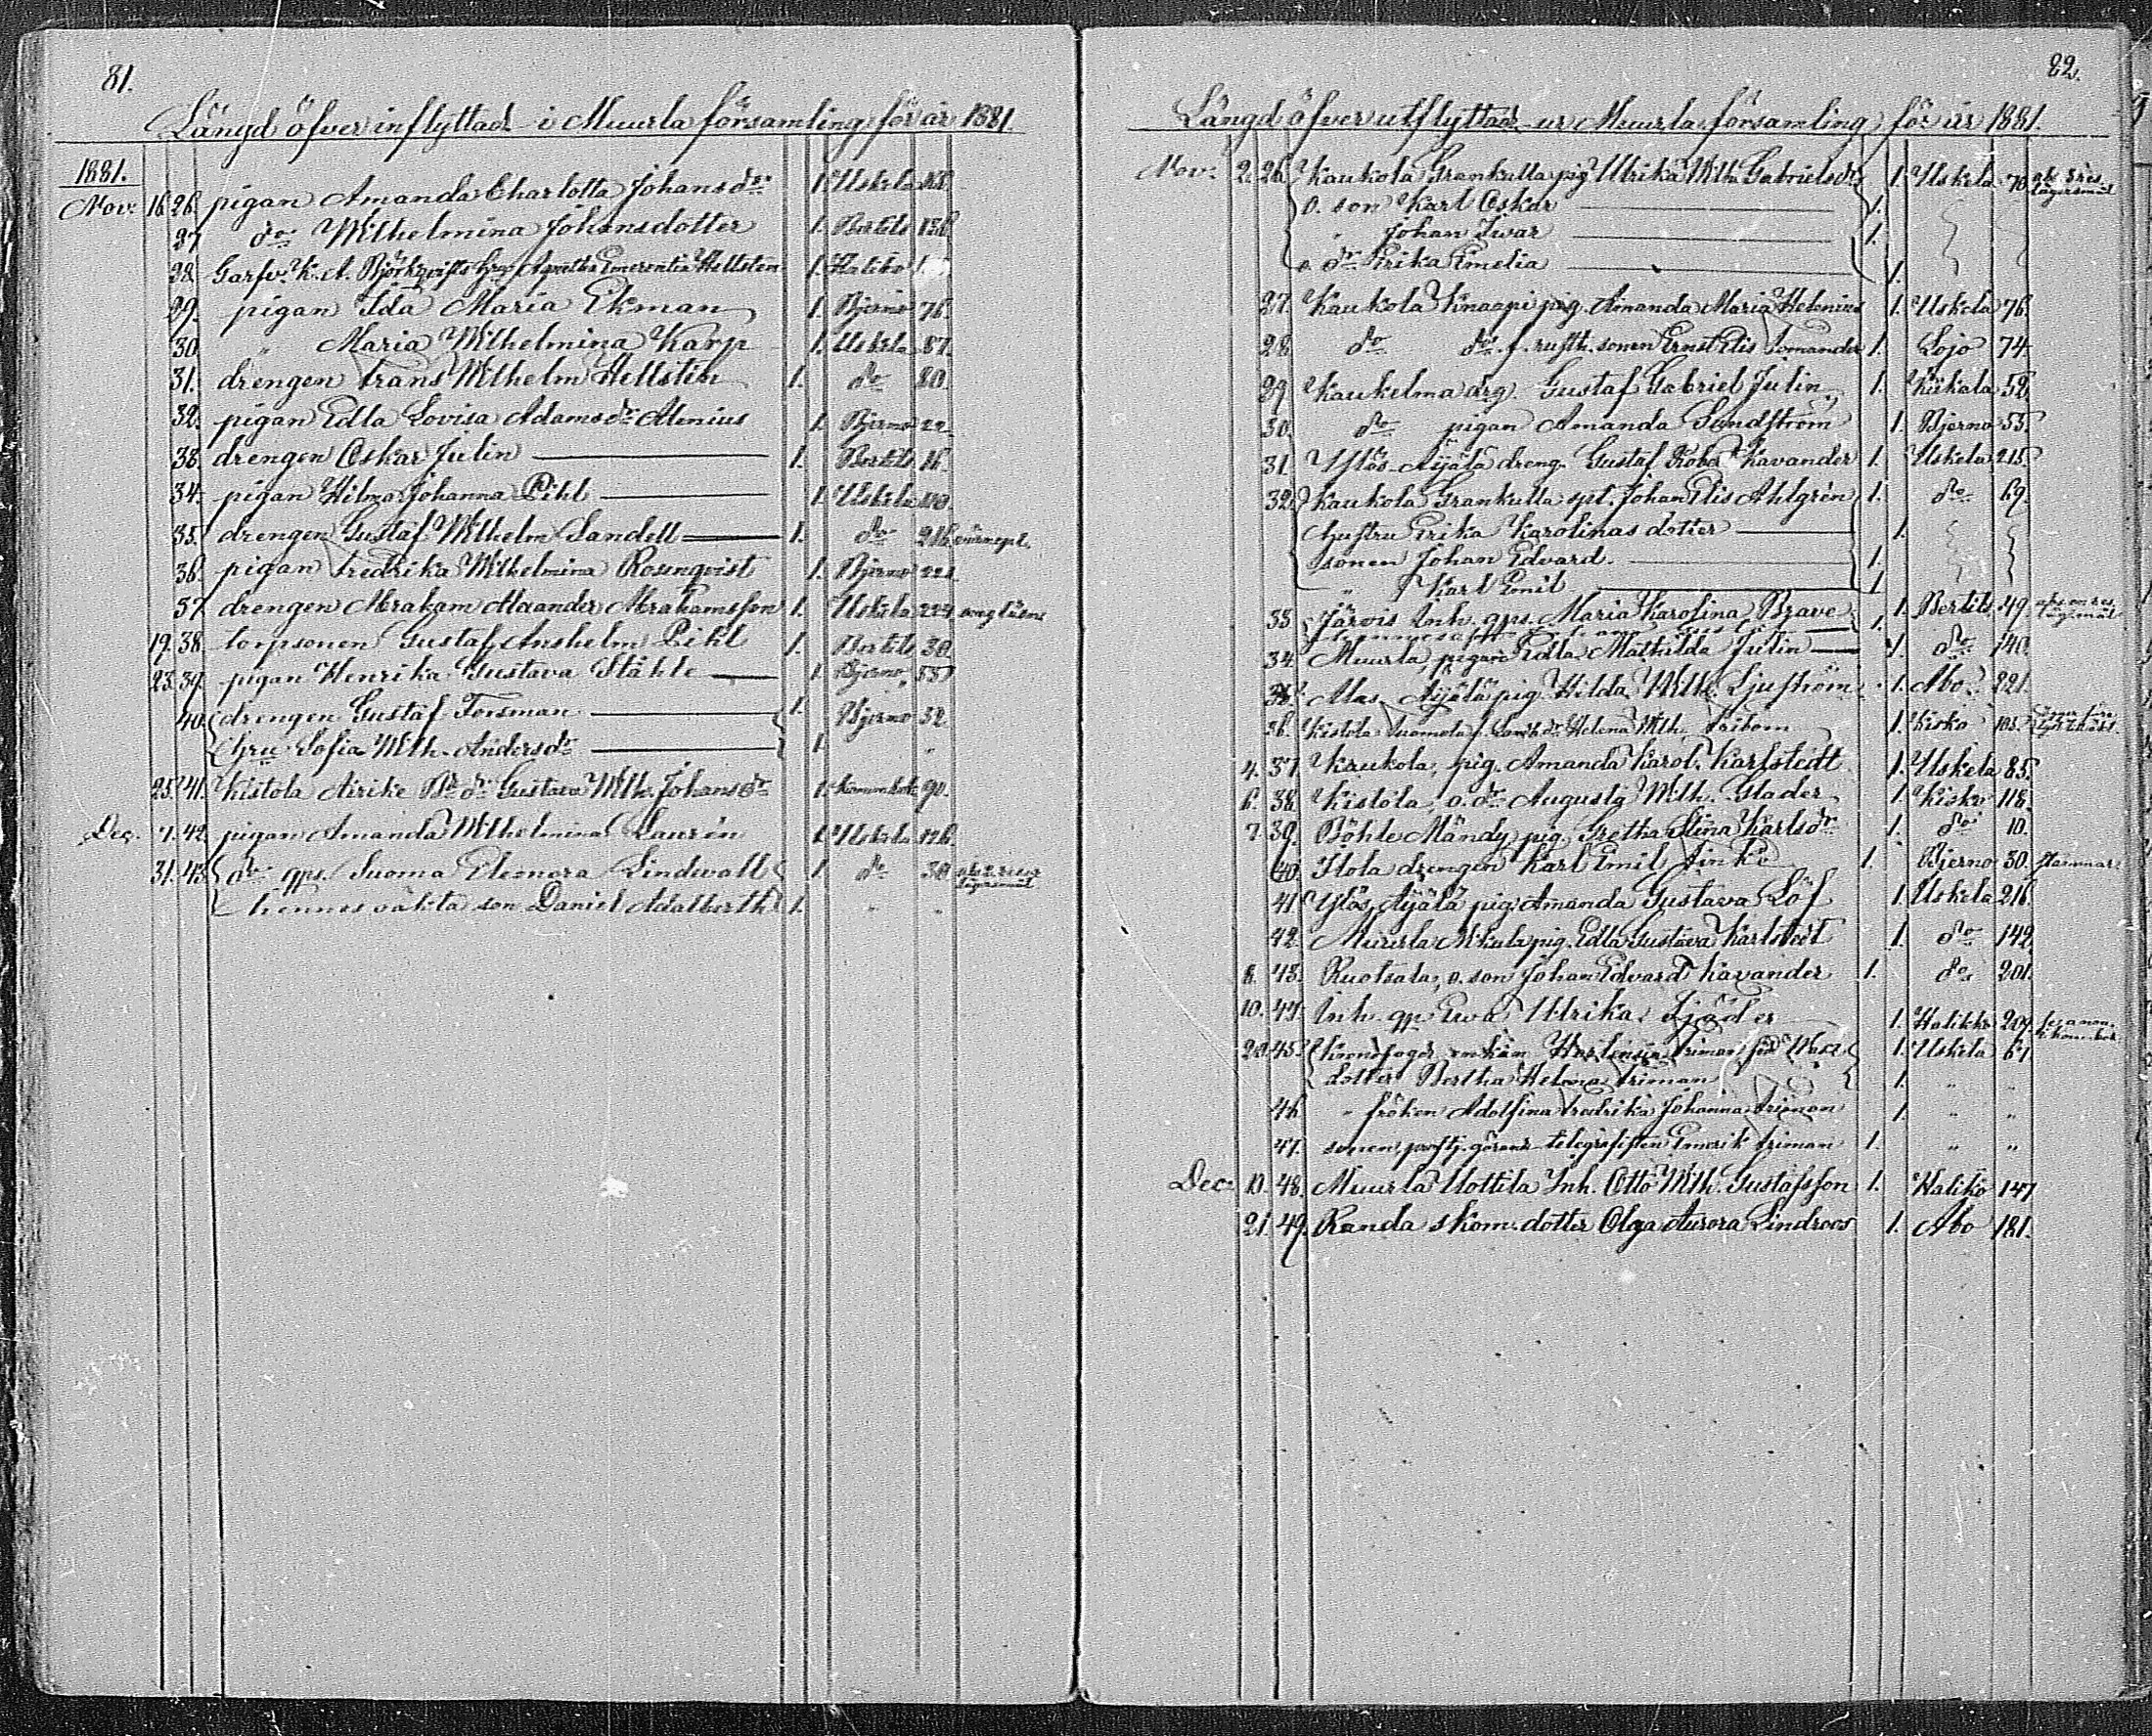 81.
Längd öfver inflyttad i Muurla församling för år 1881.
1881.
Nov. 16. 26. pigan Amanda Charlotta Johansdr 1. Uskela
27 do Wilhelmina Johansdotter 1. Bertils
28. Garfv. K. A. Björkqvists hru Agneta Emerentia Hellsten 1. Haliko
29. pigan Ida Maria Ekman 1. Bjerno 76.
30. " Maria Wilhelmina Karp 1. Uskela 87.
31. drengen Frans Wilhelm Hellstén 1. do 80.
32. pigan Edla Lovisa Adamsdr Alenius 1. Bjerno 22.
33. drengen Oskar Julin 1. Bertils 16.
34. pigan Hilma Johanna Pihl 1. Uskela 110.
35. drengen Gustaf Wilhelm Sandell 1. do 216
36. pigan Fredrika Wilhelmina Rosenqvist 1. Bjerno 221.
37. drengen Abraham Alexander Abrahamsson 1. Uskela 224
19. 38. torpsonen Gustaf Anshelm Pihl 1. Bertils 30.
23. 39. pigan Henrika Gustava Ståhle 1. Bjerno 55
40. drengen Gustaf Forsman 1. Bjerno 32
hru Sofia Wilh. Andersdr 1. "
25. 41. Kistola Airike Bdedr Gustava Wilh. Johansdr 1. 90.
Dec. 7. 42. pigan Amanda Wilhelmina Laurén 1. Uskela 126.
31. 43. do qps. Suoma Eleonora Lindevall 1. do 30 abs. 2 resor lägersmål
hennes oäkta son Daniel Adalberth 1. " "
82.
Längd öfver utflyttad ur Muurla församling för år 1881.
Nov. 2. 26. Kaukola Grankulla pig Ulrika Wilh. Gabrielsdr 1. Uskela 70. abs. 3 res. lägersmål
o. son Karl Oskar 1.
" Johan Iwar 1.
o. dr Erika Emelia 1.
27. Kaukola Knaapi pig. Amanda Maria Helenius 1. Uskela 76.
28. do do f. rusth. sonen Ernst Elis Lemander 1. Lojo 74.
29. Kaukelma drg. Gustaf Gabriel Julin 1. Kiikala 52.
30. do pigan Amanda Sundström 1. Bjerno 55.
31. Ylös-Äijälä dreng. Gustaf Robert Kavander 1. Uskela 215.
32. Kaukola Grankulla spl. Johan Elis Ahlgrén 1. do 69.
hustru Erika Karolinas dotter 1.
sonen Johan Edvard 1.
" Karl Emil 1.
33 Järvis Inh. qps. Maria Karolina Brave 1. Bertils 49
34. Muurla pigan Edla Mathilda Julin 1. do 140.
35. Alas Äijälä pig. Hilda Wilh. Ljuström 1. Åbo 221.
36. Kistola Suomola f. Landb. dr Helena Wilh. Fribom 1. Kisko 105.
4. 37. Kaukola, pig. Amanda Karol. Karlstedt 1. Uskela 85.
6. 38. Kistola, o. dr Augusta Wilh. Glader 1. Kisko 118.
7. 39. Böhle Mändy, pig. Gretha Stina Karlsdr 1. do 10.
40. Ilola drengen Karl Emil Finko 1. Bjerno 30. stammar
41. Ylös Äijälä pig. Amanda Gustava Löf 1. Uskela 216.
42. Muurla pig. Edla Gustava Karlstedt 1. do 142
8. 43. Ruotsala, o. son Johan Edvard Kavander 1. do 201.
10. 44. Inh. qp Eva Ulrika Sjöder 1. Halikko 209
20. 45. Kronofogd. enkan Hortensia Friman född Wase 1. Uskela 61.
dotter Bertha Helena Friman 1. " "
46. " fröken Adolfina Fredrika Johanna Friman 1. " "
47. sonen, telegrafisten Emerik Friman 1. " "
Dec. 10. 48. Muurla Uottila Inh. Otto Wilh. Gustafsson 1. Haliko 147
21. 49. Randa skom. dotter Olga Aurora Lindroos 1. Åbo 181.